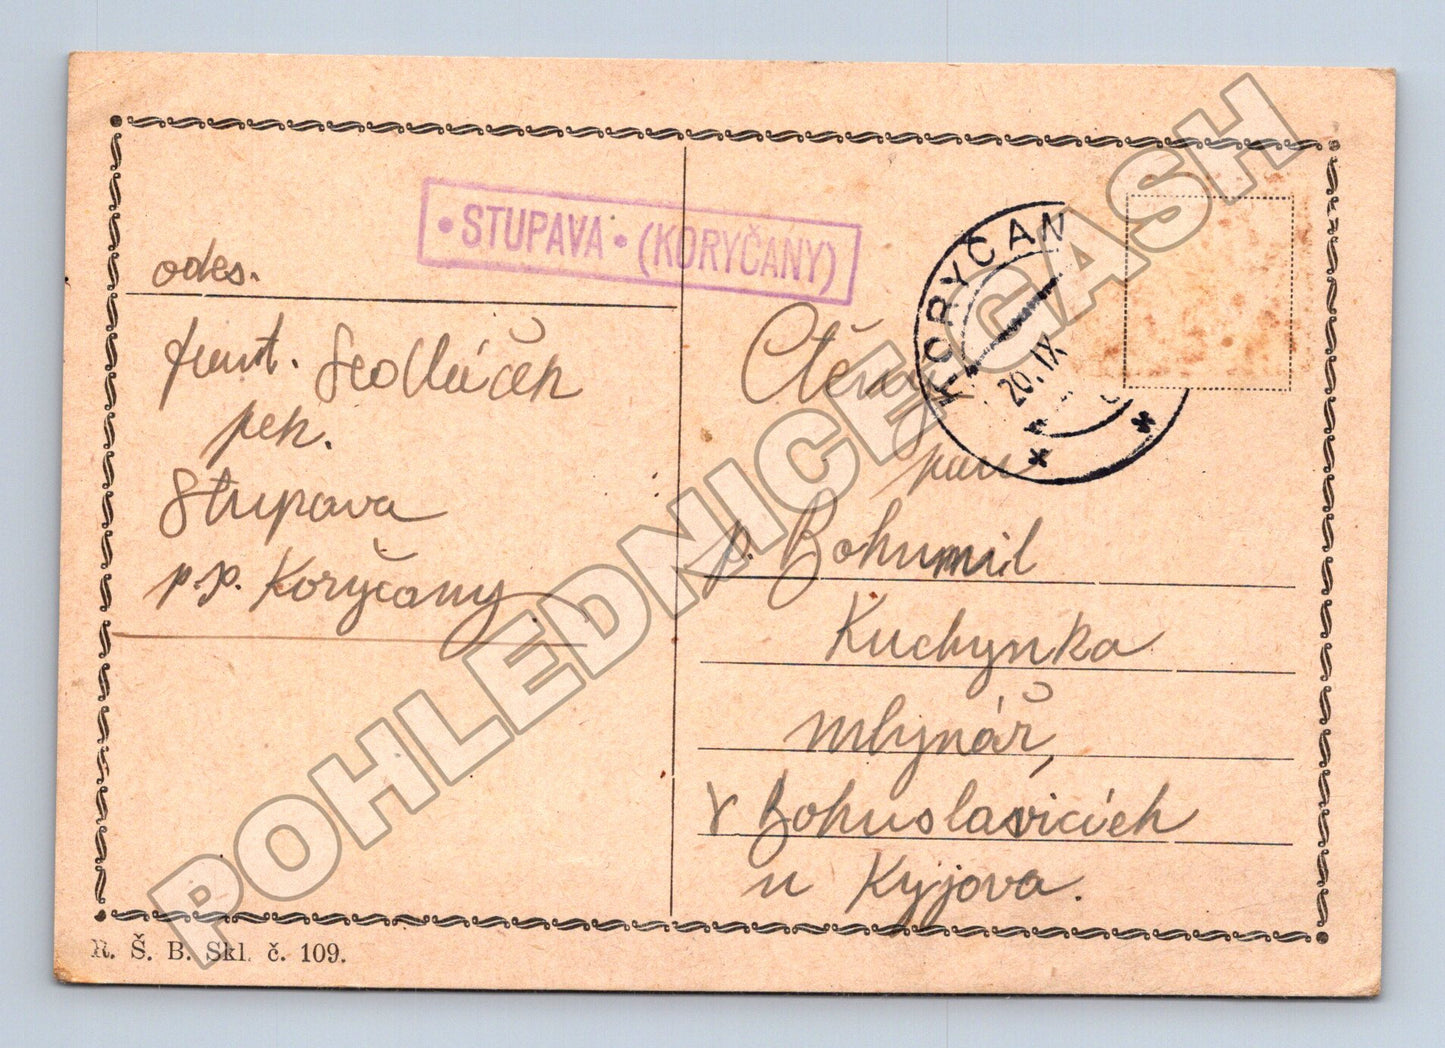 • STUPAVA • (KORYČANY)
KORYČAN
20. IX
odes.
Frant. Sedláček
pek.
Stupava
p.p. Koryčany
Ctěný
pan
p. Bohumil
Kuchynka
mlynář,
v Bohuslavicích
u Kyjova.
R. Š. B. Skl. č. 109.
POHLEDNICE-GASH